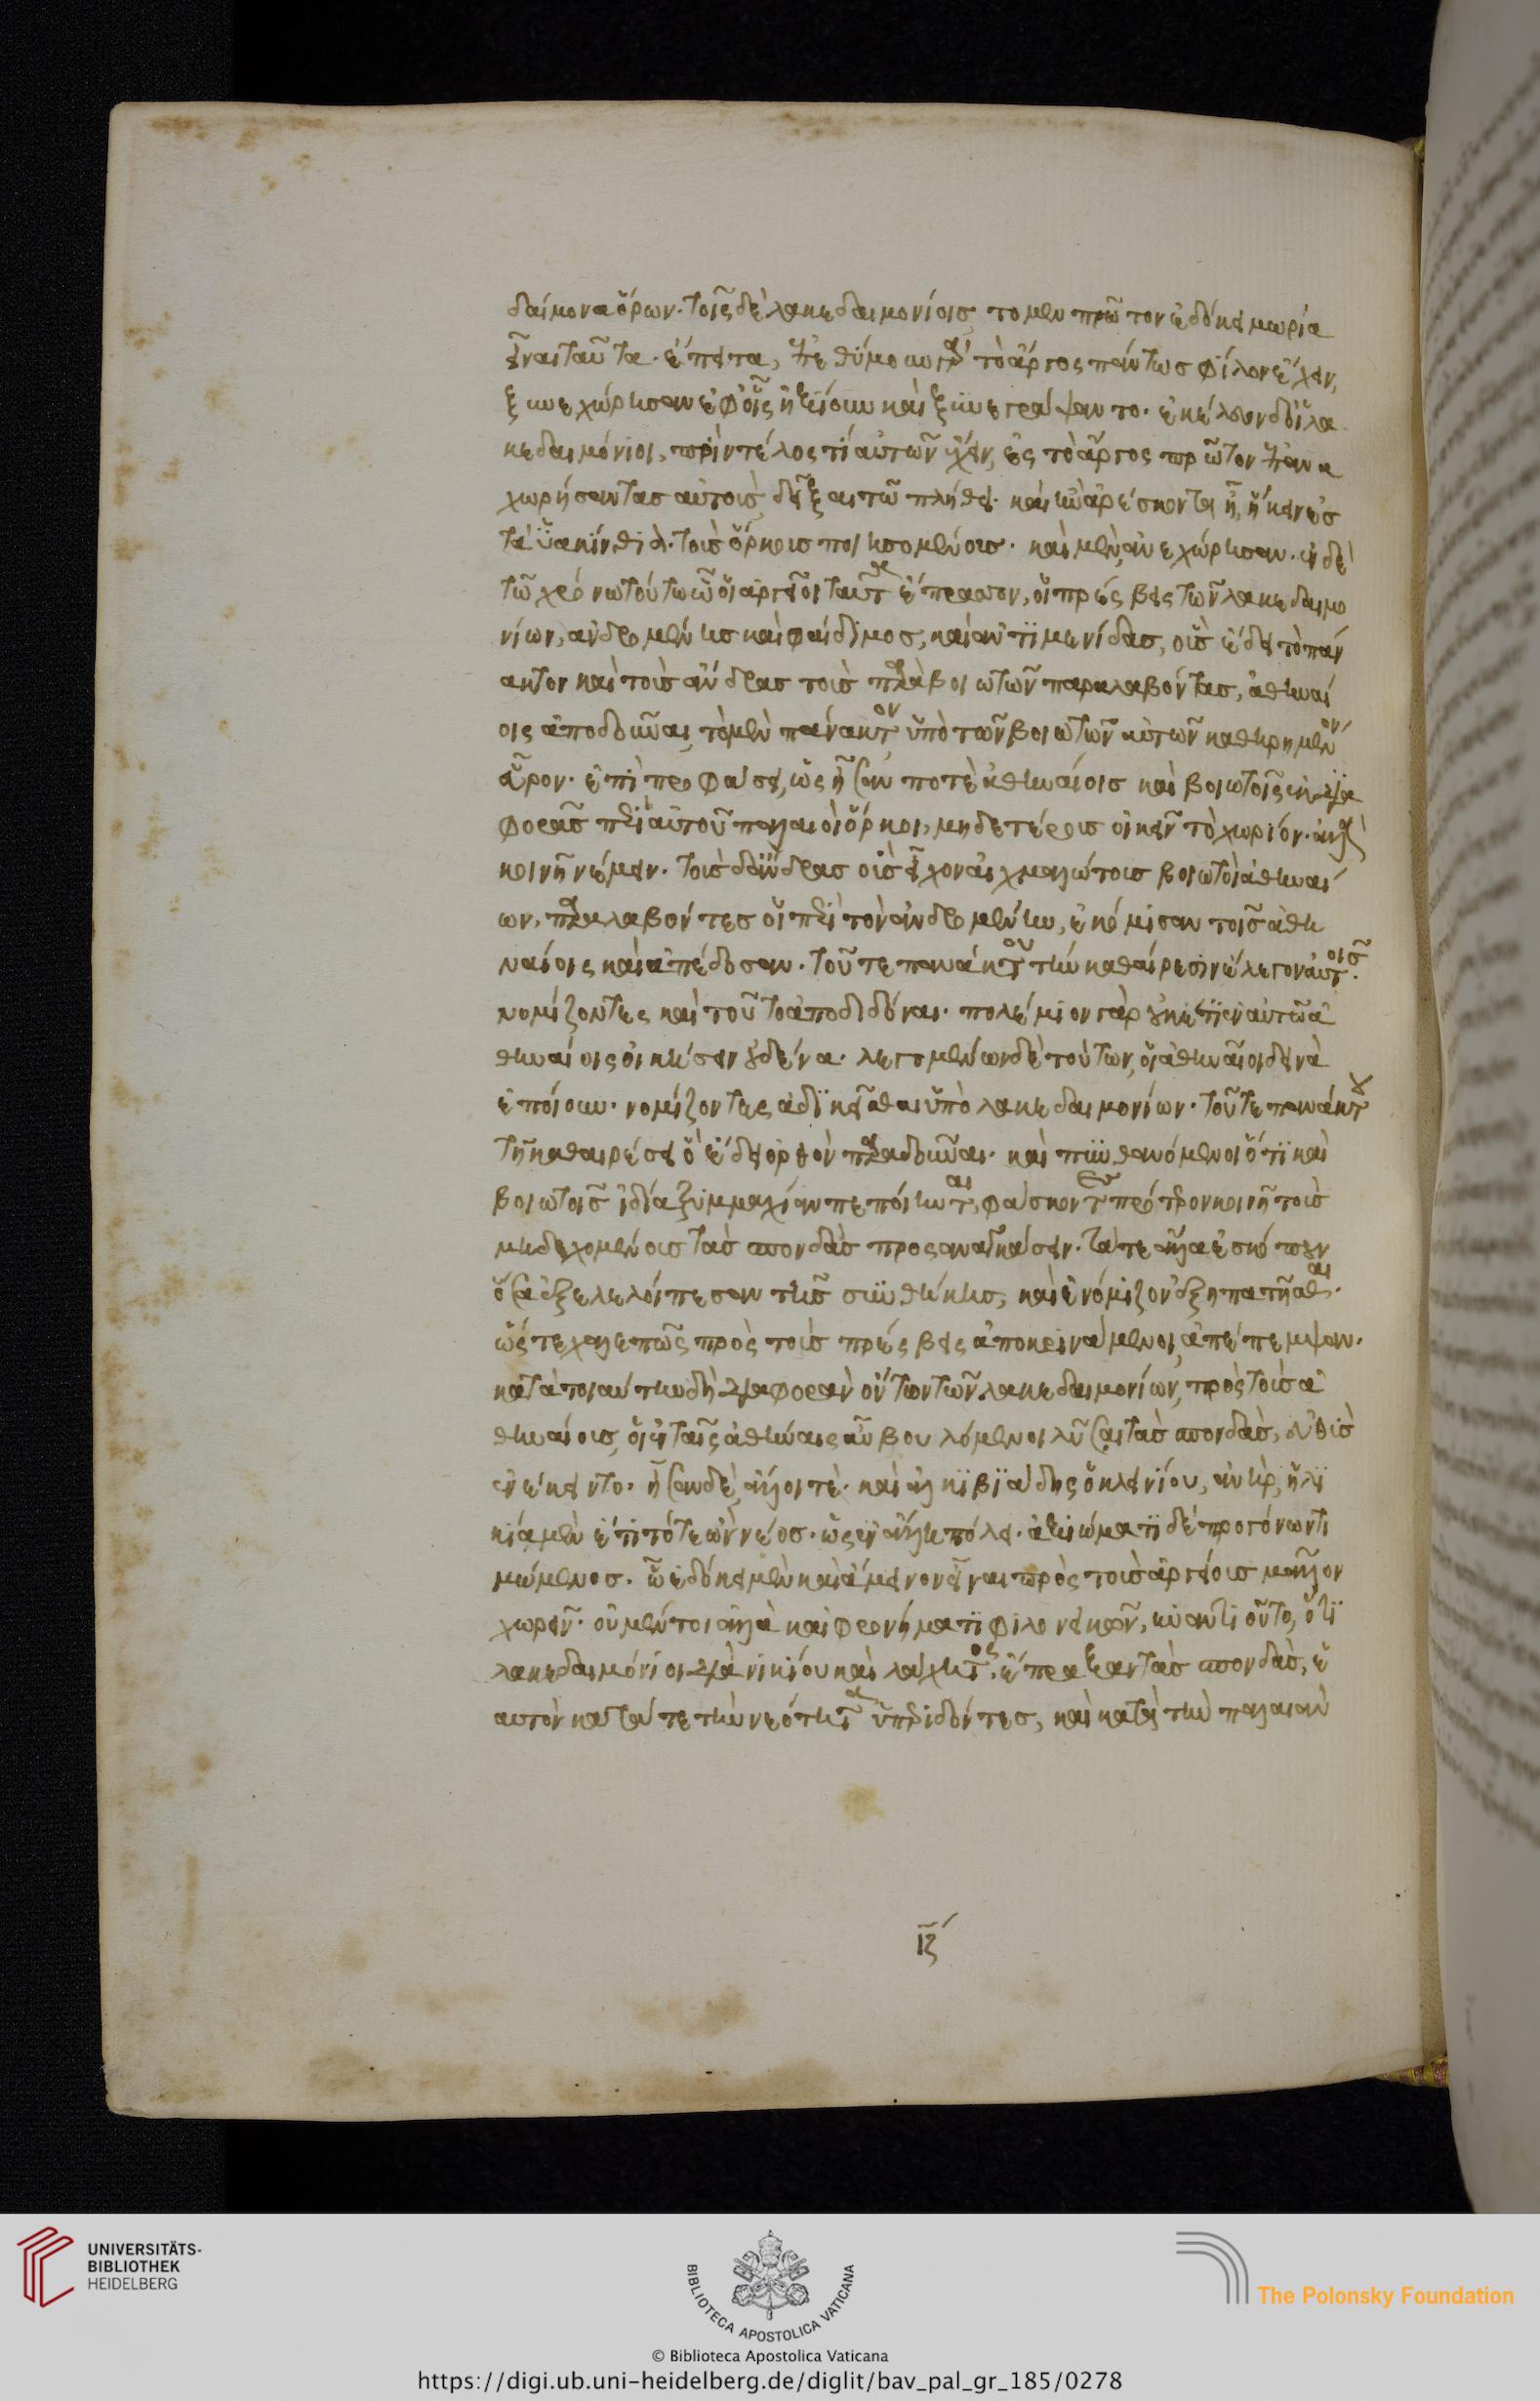 δαίμονα ὅρων. τοῖς δὲ λακεδαιμονίοις, τομεν πρῶτον ἐδόκει μωρία
εἶναι ταῦτα. ἔπειτα, ἐπεθύμουν γὰρ τὸ ἄργος πάντως φίλιον ἔχειν,
ξυνεχώρησαν ἐφ' οἷς ἠξίουν καὶ ξυνεγράψαντο. ἐκέλευον δ' οἱ λα
κεδαιμόνιοι, πρὶν τέλος τι αὐτῶν ἔχειν, ἐς τὸ ἄργος πρῶτον ἐπανα
χωρήσαντας αὐτοὺς δεῖξαι τῷ πλήθει. καὶ ἢν ἀρέσκοντα ἦ, ἥκειν ἐς
τὰ ὑακίνθια. τοὺς ὅρκους ποιησομένους. καὶ μὲν ἀνεχώρησαν. ἐν δὲ
τῷ χρόνῳ τούτῳ ᾧ οἱ ἀργεῖοι ταῦτα ἔπρασσον, οἱ πρέσβεις τῶν λακεδαιμο
νίων, ἀνδρομένης καὶ φαίδιμος, καὶ ἀντιμενίδας, οὓς ἔδει τὸ πάν
ακτον καὶ τοὺς ἄνδρας τοὺς παρὰ βοιωτῶν παραλαβόντας, ἀθηναί
οις ἀποδοῦναι, τὸ μὲν πάνακτον ὑπὸ τῶν βοιωτῶν αὐτῶν καθῃρημένον
εὗρον. ἐπὶ προφάσει, ὡς ἦσάν ποτε ἀθηναίοις καὶ βοιωτοῖς ἐκ δια
φορᾶς περὶ αὐτοῦ παλαιοὶ ὅρκοι, μηδετέρους οἰκεῖν τὸ χωρίον. ἀλλὰ
κοινῇ νέμειν. τοὺς δ' ἄνδρας οὓς εἶχον αἰχμαλώτους βοιωτοὶ ἀθηναί
ων, παραλαβόντες οἱ περὶ τὸν ἀνδρομένην, ἐκόμισαν τοῖς ἀθη
ναίοις καὶ ἀπέδοσαν. τοῦ τε πανάκτου τὴν καθαίρεσιν ἔλεγον αὐτοῖς.
νομίζοντες καὶ τοῦτο ἀποδιδόναι. πολέμιον γὰρ οὐκέτι ἐν αὐτῷ ἀ
θηναίοις οἰκήσειν οὐδένα. λεγομένων δὲ τούτων, οἱ ἀθηναῖοι δεινὰ
ἐποίουν. νομίζοντες ἀδικεῖσθαι ὑπὸ λακεδαιμονίων. τοῦ τε πανάκτου
τῇ καθαιρέσει ὃ ἔδει ὀρθὸν παραδοῦναι. καὶ πυνθανόμενοι ὅτι καὶ
βοιωτοῖς ἰδίᾳ ξυμμαχίαν πεποίηνται, φάσκοντες πρότερον κοινῇ τοὺς
μὴ δεχομένους τὰς σπονδὰς προσαναγκάσειν. τά τε ἄλλα ἐσκόπουν
ὅσα ἐξελελοίπεσαν τῆς συνθήκης, καὶ ἐνόμιζον ἐξηπατῆσθαι.
ὥστε χαλεπῶς πρὸς τοὺς πρέσβεις ἀποκρινάμενοι, ἀπέπεμψαν.
κατὰ τοιαύτην δὴ διαφορὰν ὄντων τῶν λακεδαιμονίων, πρὸς τοὺς ἀ
θηναίους, οἱ ἐν ταῖς ἀθήναις αὖ βουλόμενοι λῦσαι τὰς σπονδάς, εὐθὺς
ἐνέκειντο. ἦσαν δὲ, ἄλλοι τέ. καὶ ἀλκιβιάδης ὁ κλεινίου, ἀνὴρ, ἡλι
κίᾳ μὲν ἔτι τότε ὢν νέος. ὡς ἐν ἄλλῃ πόλει. ἀξιώματι δὲ προγόνων τι
μώμενος. ᾧ ἐδόκει μὲν καὶ ἄμεινον εἶναι πρὸς τοὺς ἀργείους μᾶλλον
χωρεῖν. οὐ μέντοι ἀλλὰ καὶ φρονήματι φιλονεικῶν, ἠναντιοῦτο, ὅτι
λακεδαιμόνιοι διὰ νικίου καὶ λάχητος, ἔπραξαν τὰς σπονδάς, ἑ
αυτὸν κατά τε τὴν νεότητα ὑπεριδόντες, καὶ κατὰ τὴν παλαιὰν
ιζ
UNIVERSITÄTS-
BIBLIOTHEK
HEIDELBERG
BIBLIOTECA APOSTOLICA VATICANA
The Polonsky Foundation
© Biblioteca Apostolica Vaticana
https://digi.ub.uni-heidelberg.de/diglit/bav_pal_gr_185/0278